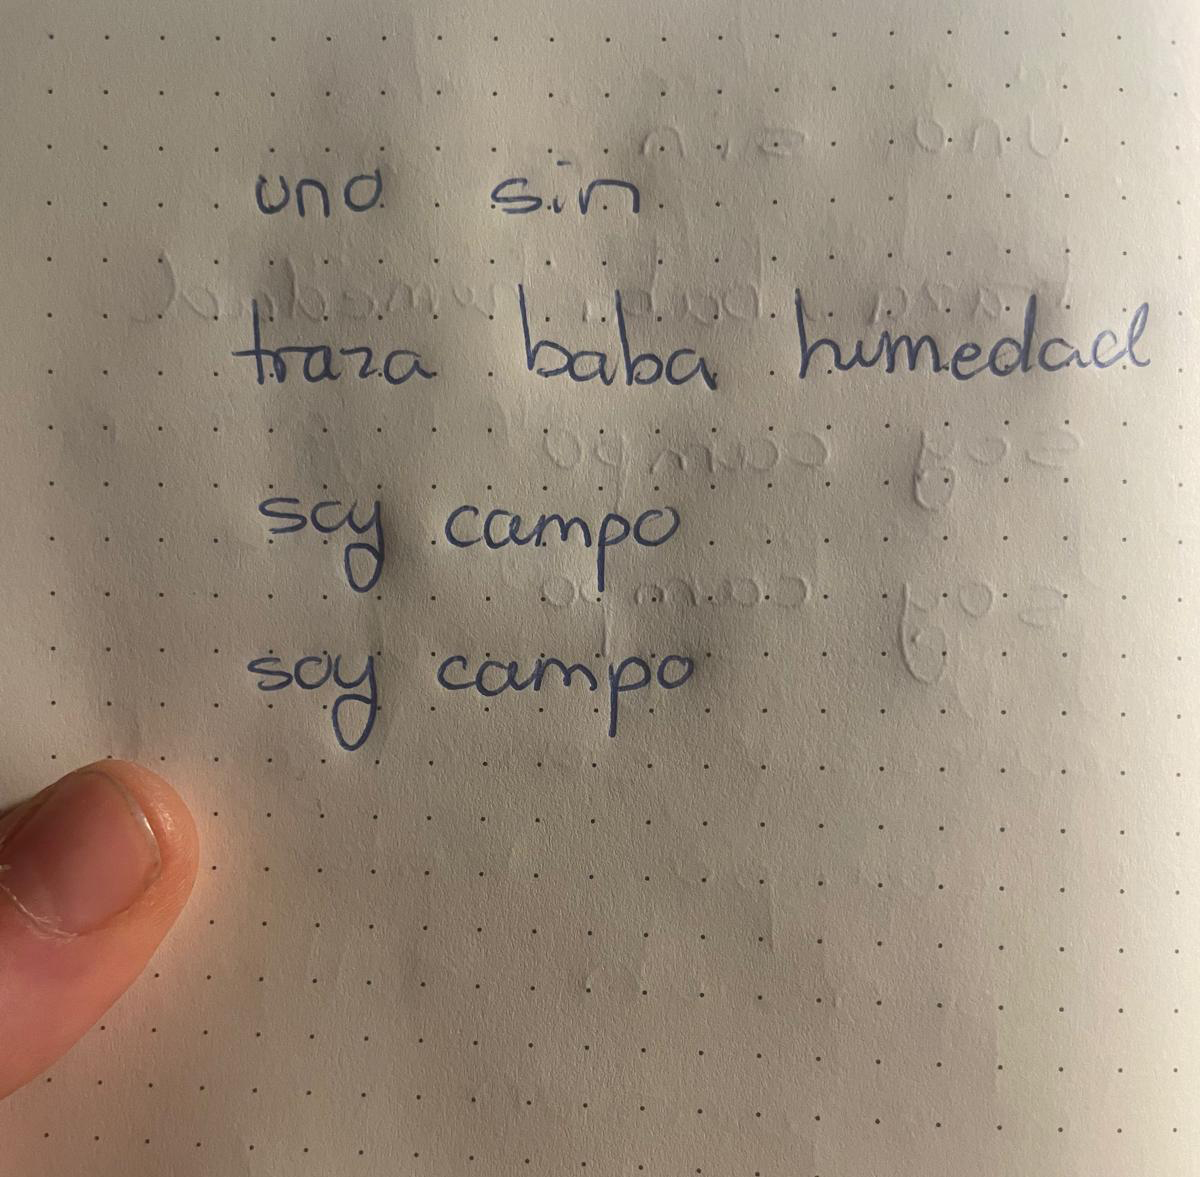 una sin
traza baba humedad
soy campo
soy campo